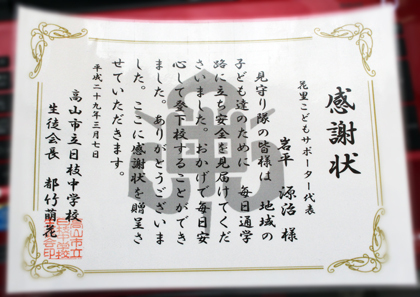 感謝状
花里こどもサポーター代表
岩平 源治 様
見守り隊の皆様は 地域の
子ども達のために 毎日通学
路に立ち安全を見届けてくだ
さいました。おかげで毎日安
心して登下校することができ
ました。ありがとうございま
した。ここに感謝状を贈呈さ
せていただきます。
平成二十九年三月七日
高山市立日枝中学校
生徒会長 都竹萌花